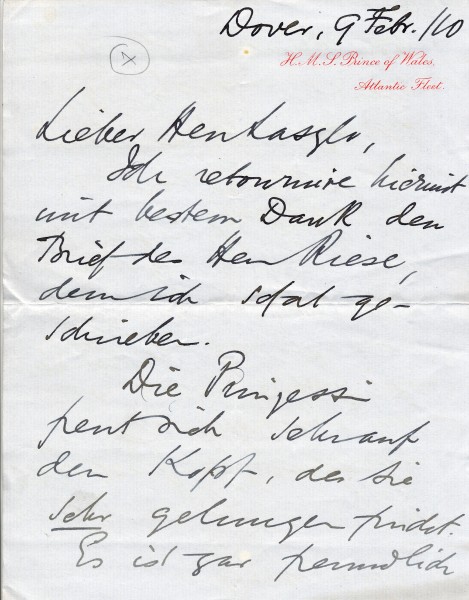 Dover, 9 Febr./10
H.M.S. Prince of Wales,
Atlantic Fleet.
Lieber Herr Laszlo,
Ich retournire hiermit
mit bestem Dank den
Brief des Herrn Riese,
dem ich so
schrieben.
Die Prinzessin
freut sich sehr auf
den Kopf, den sie
sehr gelungen findet.
Es ist gar freundlich